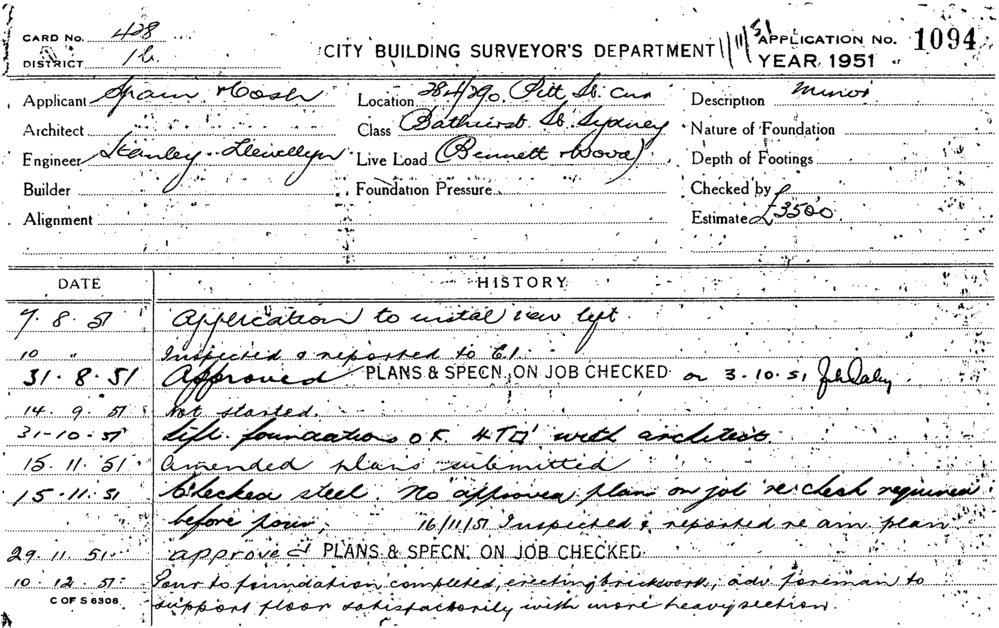 CARD No. 428
DISTRICT 1b
CITY BUILDING SURVEYOR'S DEPARTMENT
1/11/51
APPLICATION No. 1094
YEAR 1951
Applicant Spain & Cosh
Location 284/290 Pitt St. Cnr
Description Minor
Architect
Class Bathurst St. Sydney
Nature of Foundation
Engineer Stanley Llewellyn
Live Load (Bennett & Wood)
Depth of Footings
Builder
Foundation Pressure
Checked by
Alignment
Estimate £3500
DATE HISTORY
7.8.51 Application to instal new lift.
10 " Inspected & reported to C.I.
31.8.51 Approved PLANS & SPECN. ON JOB CHECKED on 3.10.51
14.9.51 Not started.
31-10-51 Lift foundations OK 4T□' with architect
15.11.51 Amended plans submitted
15-11-51 Checked steel. No approved plans on job re check required
before pour. 16/11/51 Inspected & reported re am. plan
29.11.51 approved PLANS & SPECN. ON JOB CHECKED
10.12.51 Pour to foundation completed, erecting brickwork, adv. foreman to
C OF S 6306
support floor satisfactorily with more heavy section.